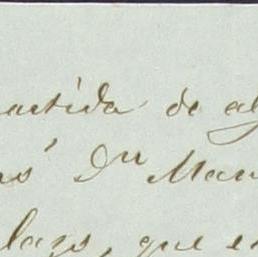 artida de al
Dn Man
lazo, que e